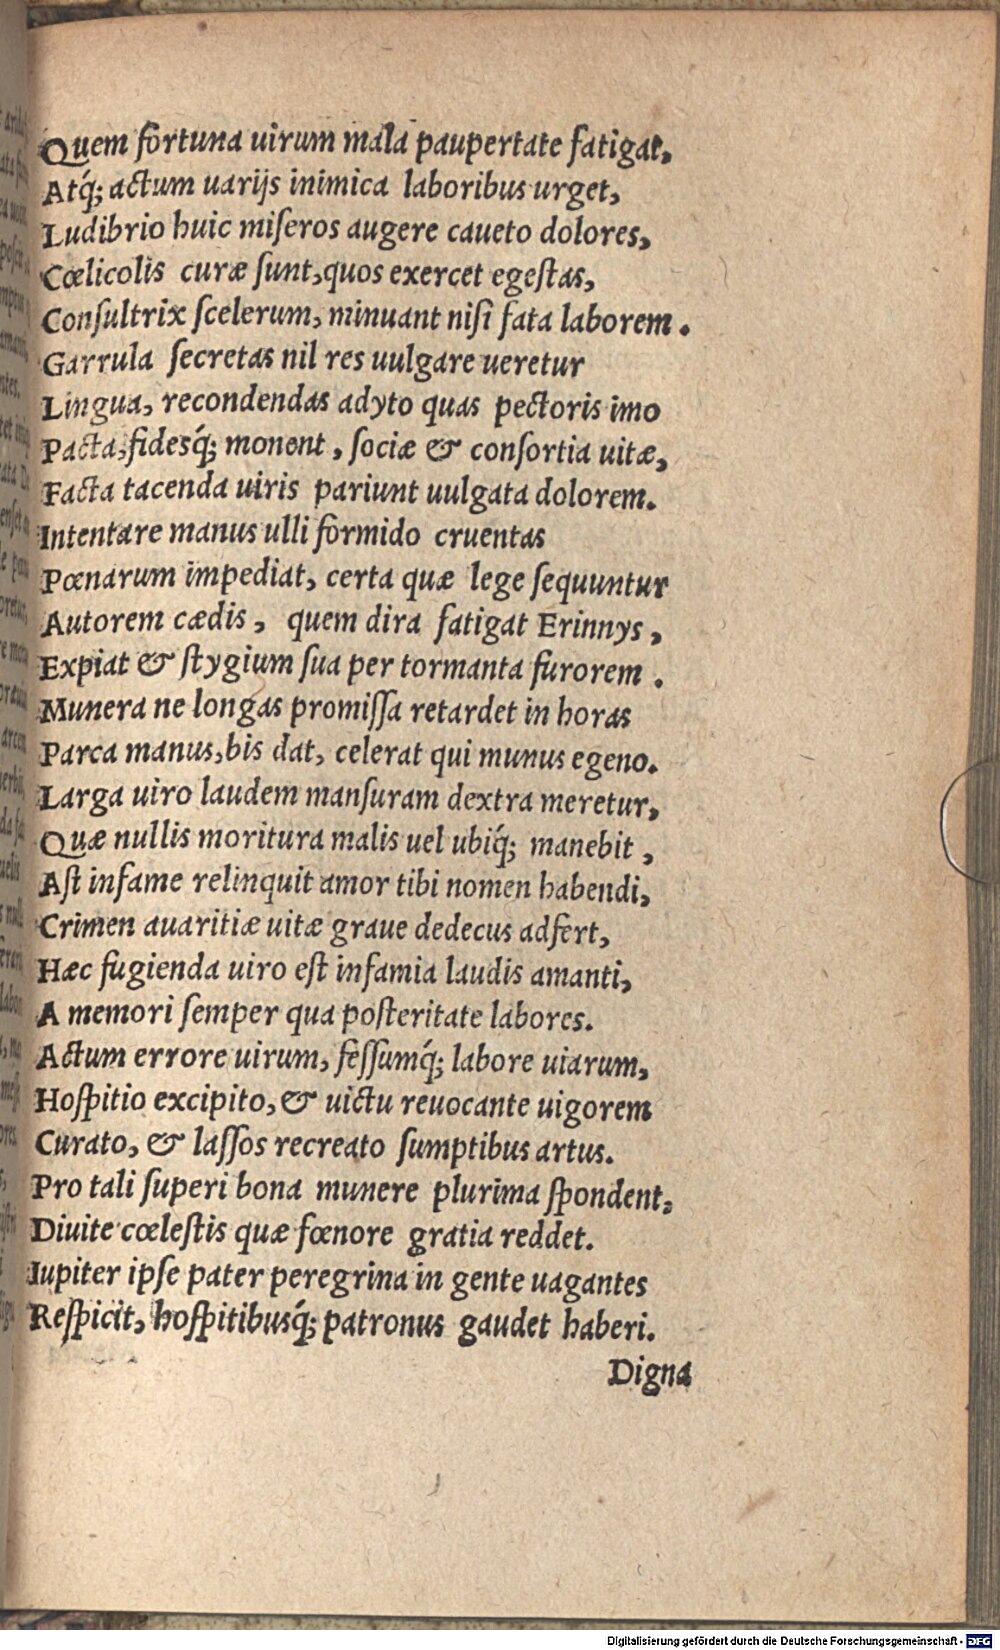 Quem fortuna uirum mala paupertate fatigat,
Atq́; actum uarijs inimica laboribus urget,
Ludibrio huic miseros augere caueto dolores,
Cœlicolis curæ sunt, quos exercet egestas,
Consultrix scelerum, minuant nisi fata laborem.
Garrula secretas nil res uulgare ueretur
Lingua, recondendas adyto quas pectoris imo
Pacta, fidesq́; monent, sociæ & consortia uitæ,
Facta tacenda uiris pariunt uulgata dolorem.
Intentare manus ulli formido cruentas
Pœnarum impediat, certa quæ lege sequuntur
Autorem cædis, quem dira fatigat Erinnys,
Expiat & stygium sua per tormanta furorem.
Munera ne longas promissa retardet in horas
Parca manus, bis dat, celerat qui munus egeno.
Larga uiro laudem mansuram dextra meretur,
Quæ nullis moritura malis uel ubiq́; manebit,
Ast infame relinquit amor tibi nomen habendi,
Crimen auaritiæ uitæ graue dedecus adfert,
Hæc fugienda uiro est infamia laudis amanti,
A memori semper qua posteritate labores.
Actum errore uirum, fessumq́; labore uiarum,
Hospitio excipito, & uictu reuocante uigorem
Curato, & lassos recreato sumptibus artus.
Pro tali superi bona munere plurima spondent,
Diuite cœlestis quæ fœnore gratia reddet.
Iupiter ipse pater peregrina in gente uagantes
Respicit, hospitibusq́; patronus gaudet haberi.
Digna
Digitalisierung gefördert durch die Deutsche Forschungsgemeinschaft - DFG